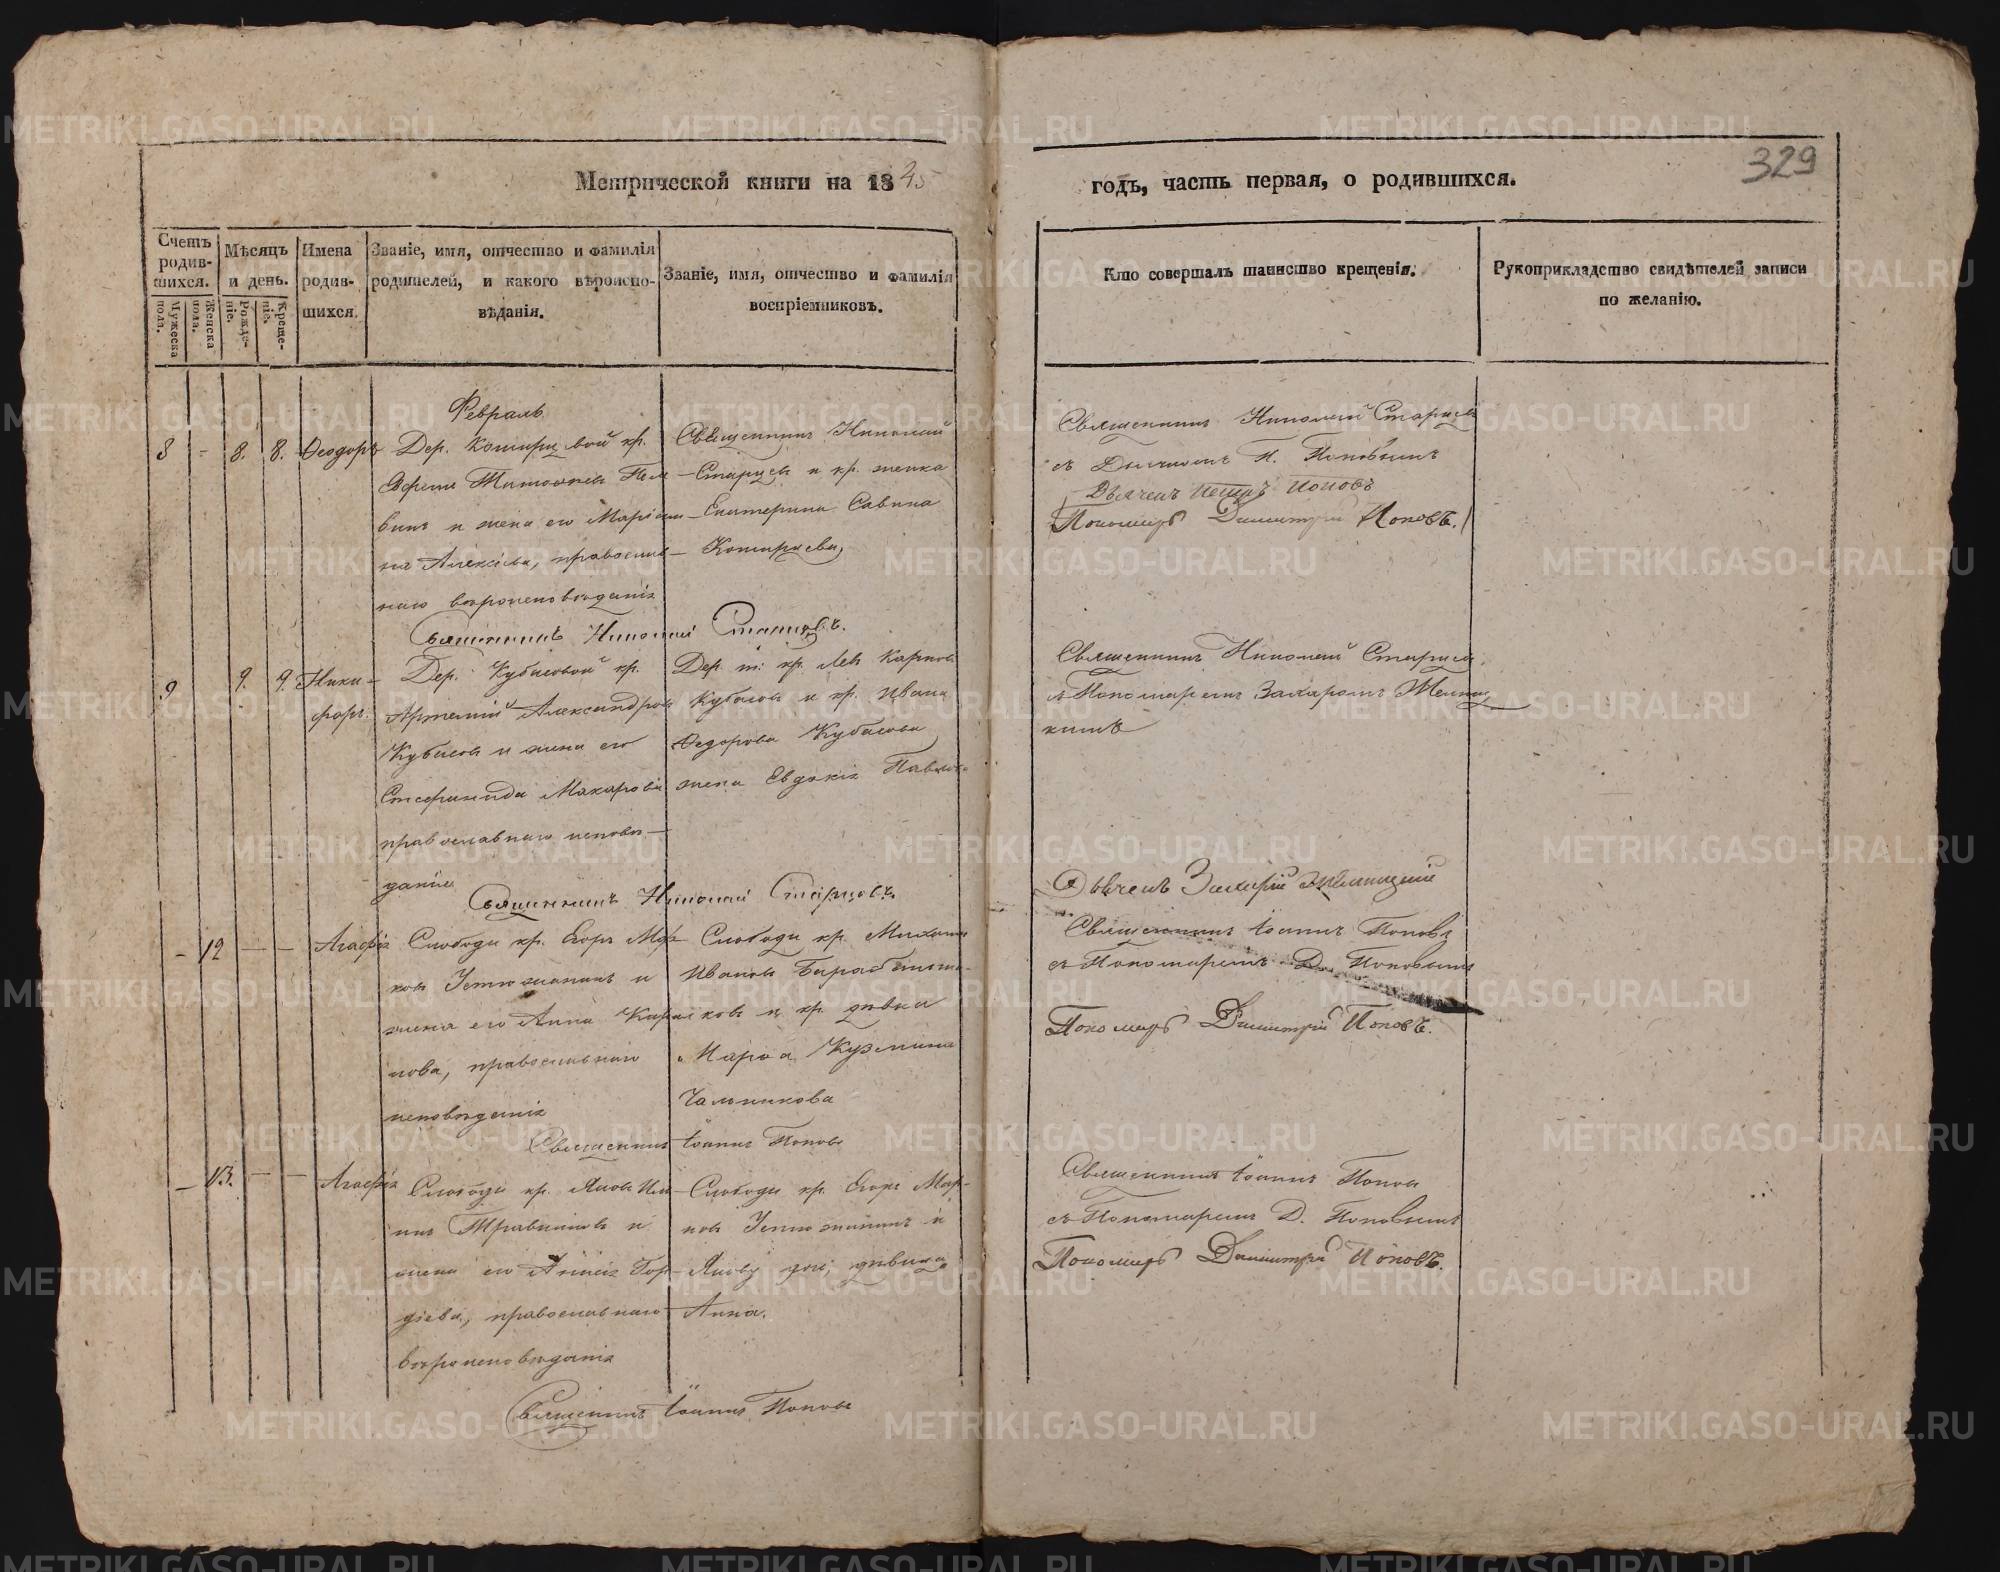 329
Метрической книги на 1845
годъ, часть первая, о родившихся.
Счетъ родившихся.
Мужеска пола.
Женска пола.
Мѣсяцъ и день.
Рожденіе.
Крещеніе.
Имена родившихся.
Званіе, имя, отчество и фамилія
родителей, и какого вѣроиспо-
вѣданія.
Званіе, имя, отчество и фамилія
воспріемниковъ.
Кто совершалъ таинство крещенія.
Рукоприкладство свидѣтелей записи
по желанію.
Февраль
8 - 8. 8. Ѳеодоръ
Дер. кр.
и жена его
на Алексѣева, православ-
наго вѣроисповѣданія
Священникъ Николай
Старцевъ и кр. женка
Екатерина Савина
Священникъ Николай Старцевъ
съ Дьячкомъ П. Поповымъ
Дьячекъ Петръ Поповъ
Пономарь Димитрій Поповъ.
Священникъ Николай Старцовъ.
9 9. 9. Ники-
форъ.
Дер. Кубасовой кр.
Артемій Александровъ
Кубасовъ и жена его
Стефанида Макарова
православнаго исповѣ-
данія
Дер. т: кр. Левъ Карповъ
Кубасовъ и кр. Ивана
Ѳедорова Кубасова
жена Евдокія Павлов.
Священникъ Николай Старцевъ
съ Пономаремъ Захаромъ
Священникъ Николай Старцовъ.
Дьячекъ Захарій
- 12 - - Агафія
Слободы кр. Егоръ Мар-
ковъ Устюжанинъ и
жена его Анна Кирил-
лова, православнаго
исповѣданія
Слободы кр. Михаилъ
Ивановъ
ковъ и кр. дѣвка
Марѳа Кузмина
Священникъ Іоаннъ Поповъ
съ Пономаремъ Д. Поповымъ
Пономарь Димитрій Поповъ.
Священникъ Іоаннъ Поповъ
- 13. - - Агафія
Слободы кр. Яковъ Иль-
инъ Травниковъ и
жена его Гор-
дѣева, православнаго
вѣроисповѣданія
Слободы кр. Егоръ Мар-
ковъ Устюжанинъ и
дѣвица
Анна.
Священникъ Іоаннъ Поповъ
съ Пономаремъ Д. Поповымъ
Пономарь Димитрій Поповъ.
Священникъ Іоаннъ Поповъ
METRIKI.GASO-URAL.RU